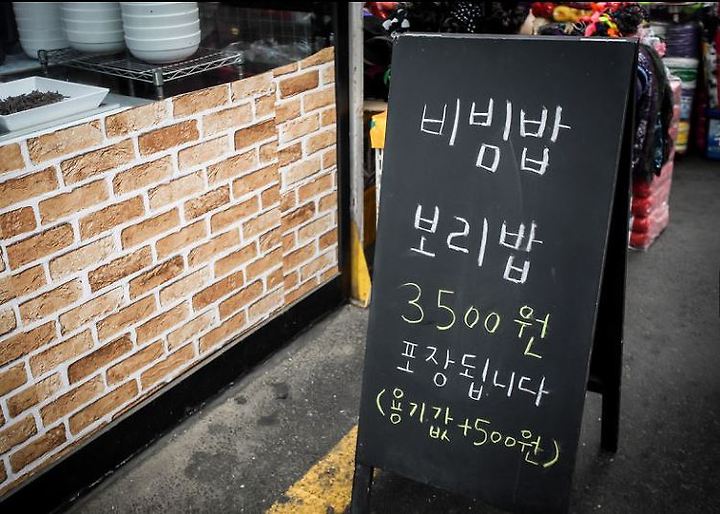 비빔밥
보리밥
3500원
포장됩니다
(용기값+500원)